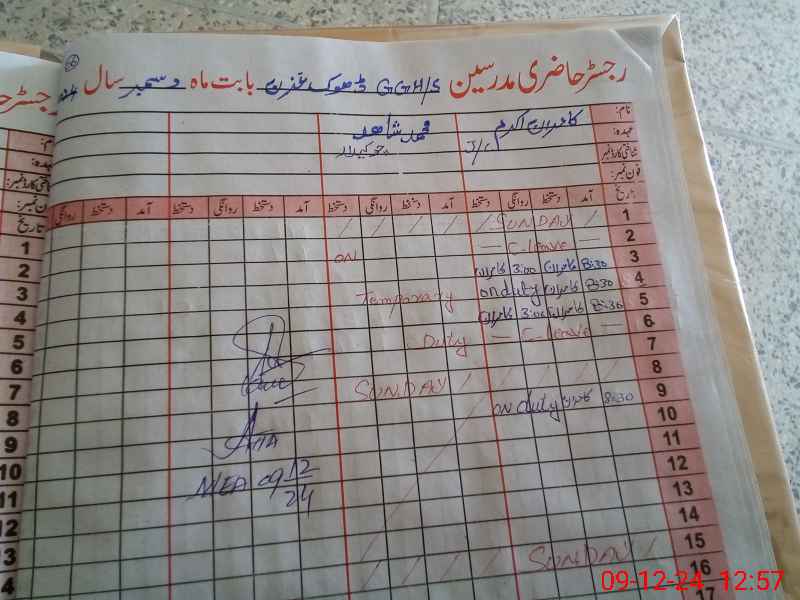 رجسٹر حاضری مدرسین GGH/S ڈھوک غزن بابت ماہ دسمبر سال
نام: کامران اکرم محمد شاھد
عہدہ: J/C چوکیدار
شناختی کارڈ نمبر:
فون نمبر:
تاریخ آمد دستخط روانگی دستخط آمد دستخط روانگی دستخط آمد دستخط روانگی دستخط آمد دستخط روانگی
1 SUNDAY
2 — C.leave — ON
3 8:30 کامران 3:00 کامران
4 8:30 کامران on duty Temporary
5 8:30 کامران 3:00 کامران
6 — C-leave — Duty
7
8 SUNDAY
9 8:30 کامران on duty
10
11
12
13
14
15 SUNDAY
16
17
AEIA
MEA 09 12
24
رجسٹر
عہدہ:
فون نمبر:
تاریخ
1
2
3
4
5
6
7
8
9
10
11
12
13
4
09-12-24 12:57